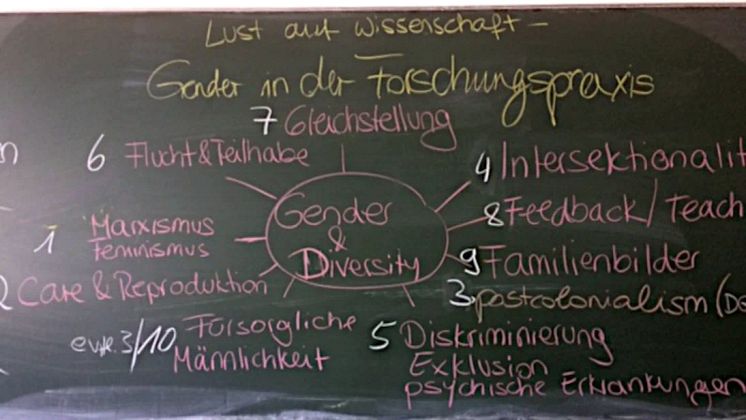 Lust auf Wissenschaft –
Gender in der Forschungspraxis
7 Gleichstellung
6 Flucht & Teilhabe
4 Intersektionalit
Gender
&
Diversity
8 Feedback/Teach
1 Marxismus
Feminismus
9 Familienbilder
2 Care & Reproduktion
3 postcolonialism (De
10 Fürsorgliche
Männlichkeit
5 Diskriminierung
Exklusion
psychische Erkrankungen